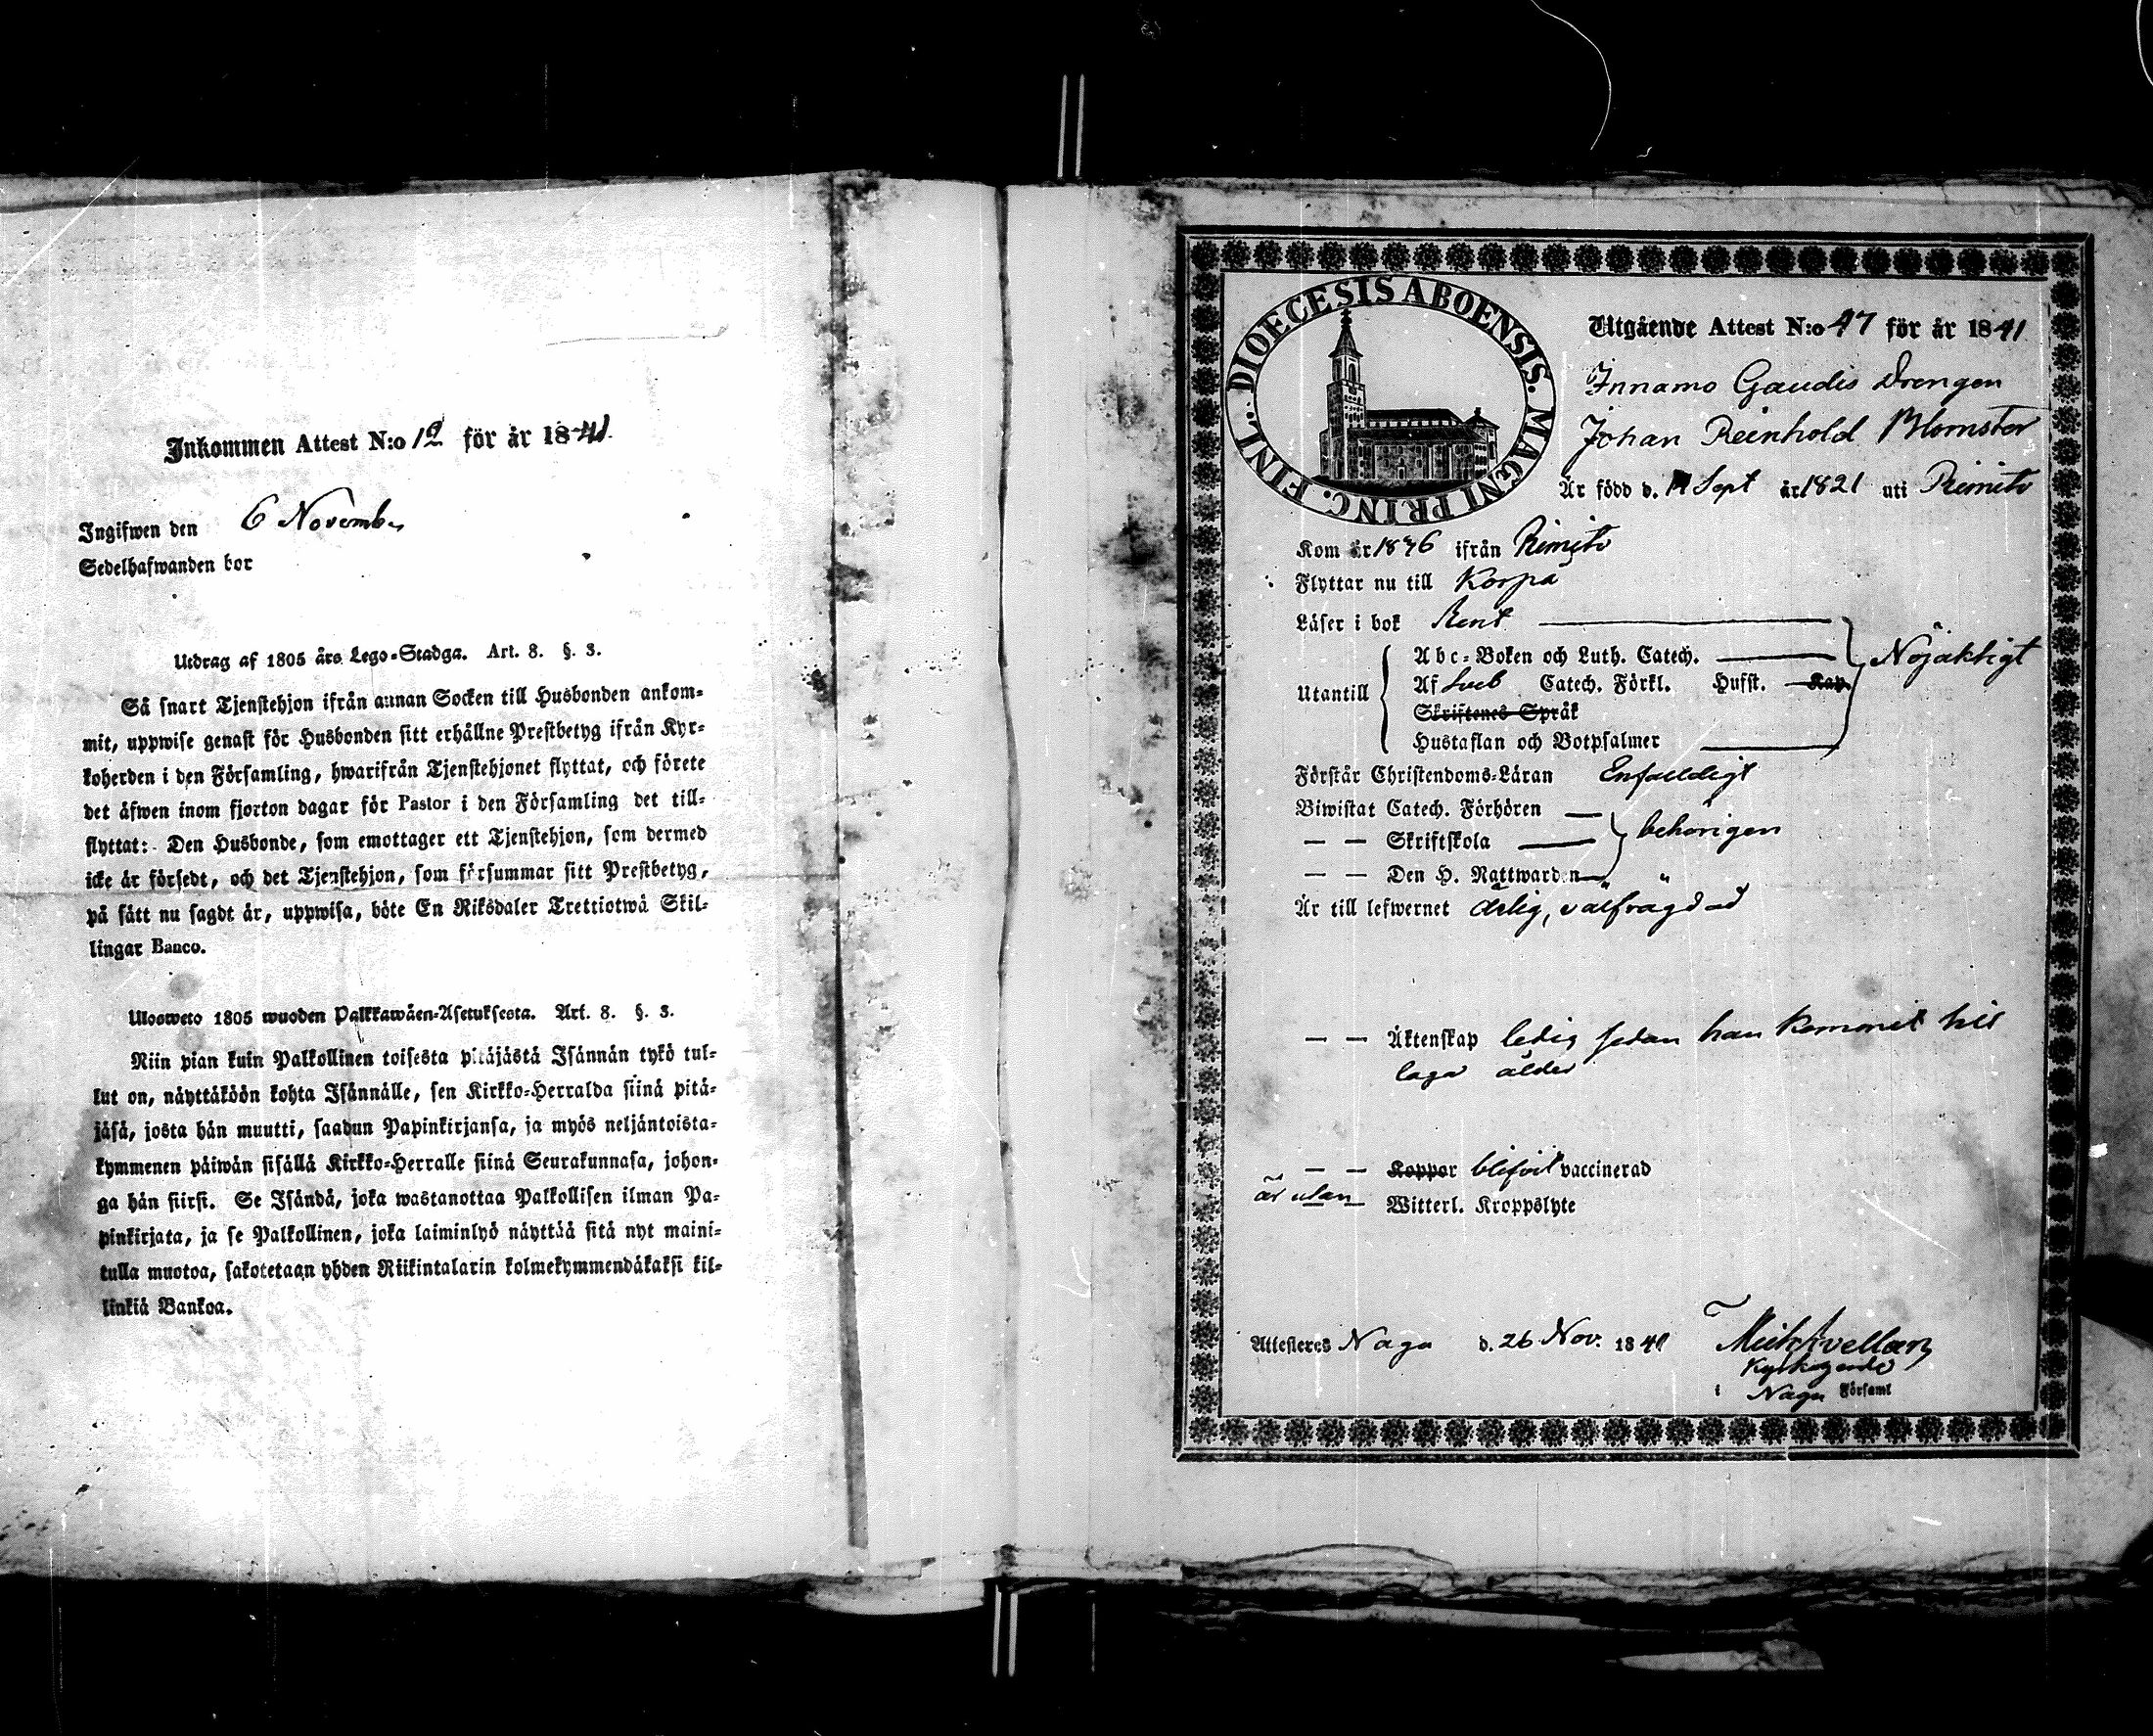 Inkommen Attest N:o 12 för år 1841.
Ingifwen den 6 Novemb.
Sedelhafwanden bor
Utdrag af 1805 års Lego-Stadga. Art. 8. §. 3.
Så snart Tjenstehjon ifrån annan Socken till Husbonden ankom-
mit, uppwise genast för Husbonden sitt erhållne Prestbetyg ifrån Kyr-
koherden i den Församling, hwarifrån Tjenstehjonet flyttat, och förete
det äfwen inom fjorton dagar för Pastor i den Församling det till-
flyttat: Den Husbonde, som emottager ett Tjenstehjon, som dermed
icke är försedt, och det Tjenstehjon, som försummar sitt Prestbetyg,
på sätt nu sagdt är, uppwisa, böte En Riksdaler Trettiotwå Skil-
lingar Banco.
Ulosweto 1805 wuoden Palkkawäen-Asetuksesta. Art. 8. §. 3.
Niin pian kuin Palkollinen toisesta pitäjästä Isännän tykö tul-
lut on, näyttäköön kohta Isännälle, sen Kirkko-Herralda siinä pitä-
jäsä, josta hän muutti, saadun Papinkirjansa, ja myös neljäntoista-
kymmenen päiwän sisällä Kirkko-Herralle siinä Seurakunnasa, johon-
ga hän siirsi. Se Isändä, joka wastanottaa Palkollisen ilman Pa-
pinkirjata, ja se Palkollinen, joka laiminlyö näyttää sitä nyt maini-
tulla muotoa, sakotetaan yhden Riikintalarin kolmekymmendäkaksi kil-
linkiä Bankoa.
DIOECESIS ABOENSIS. MAGNI PRINC. FINL.
Utgående Attest N:o 47 för år 1841
Innamo Gaudis Drengen
Johan Reinhold Blomster
Är född d. Sept år 1821 uti Rimito
Kom år ifrån Rimito
Flyttar nu till Korpo
Läser i bok Rent
Abc-Boken och Luth. Catech. Nöjaktigt
Utantill Af Sveb Catech. Förkl. Husst. Kap.
Skriftenes Språk
Hustaflan och Botpsalmer
Förstår Christendoms-Läran Enfaldigt
Biwistat Catech. Förhören
— — Skriftskola behörigen
— — Den H. Nattwarden
Är till lefwernet ärlig, välfrägdad
— — Äktenskap ledig sedan han kommit till
laga ålder
— — Koppor blifvit vaccinerad
är utan — Witterl. Kroppslyte
Attesteres Nagu d. 26 Nov. 1841
Kyrkoherde
i Nagu Församl